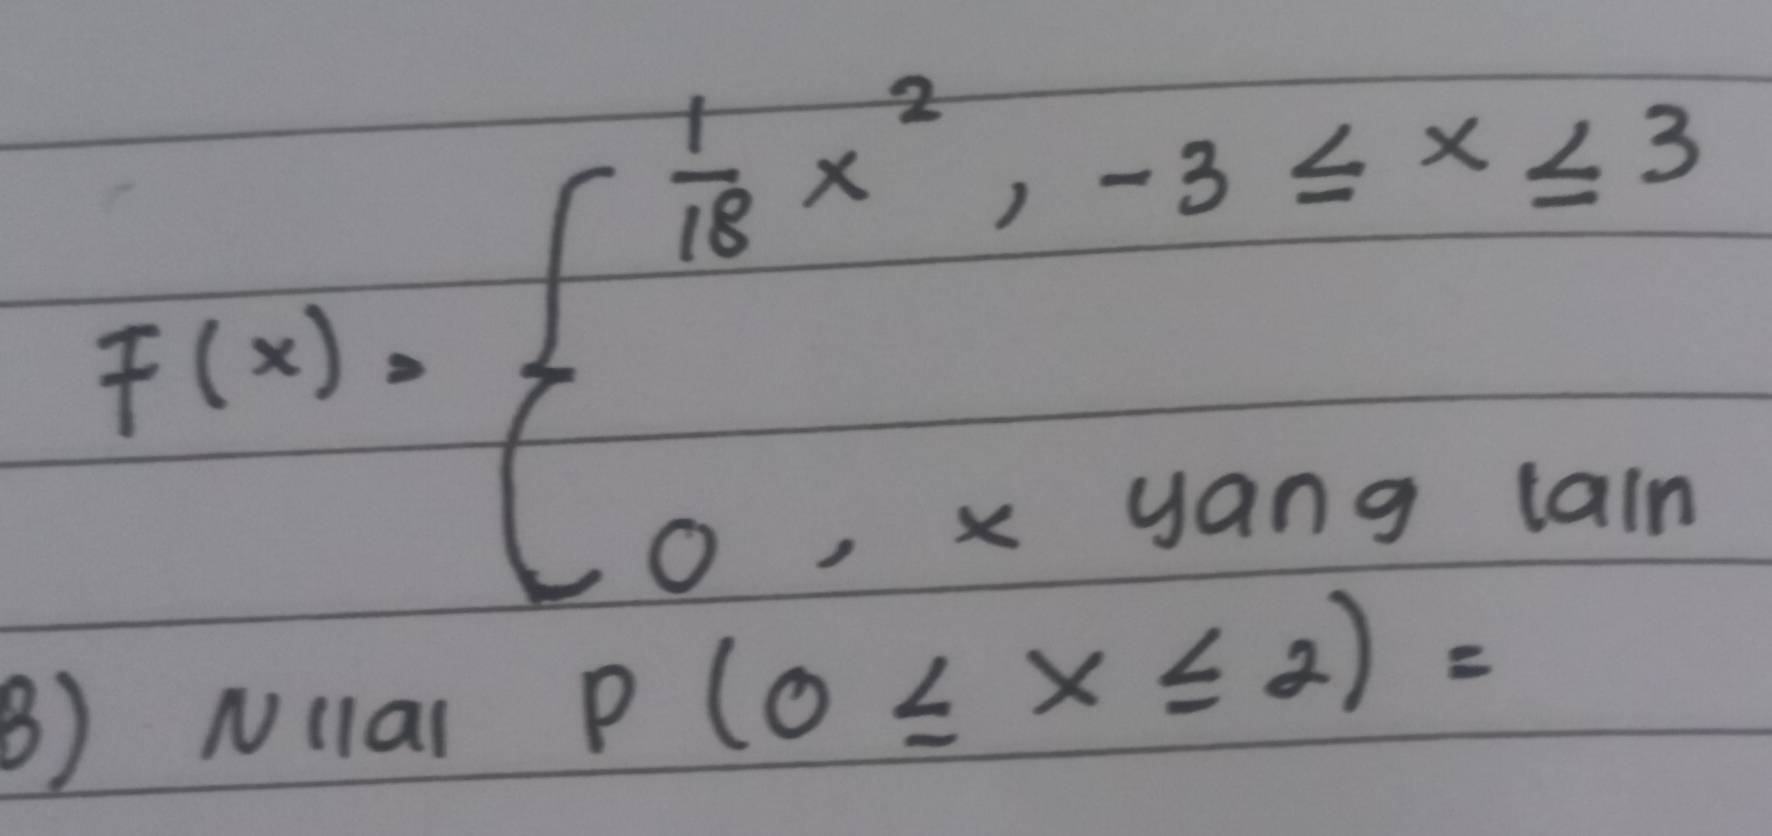 F(x) = { 1/18 x², -3 ≤ x ≤ 3
0, x yang lain
B) Nilai P (0 ≤ x ≤ 2) =